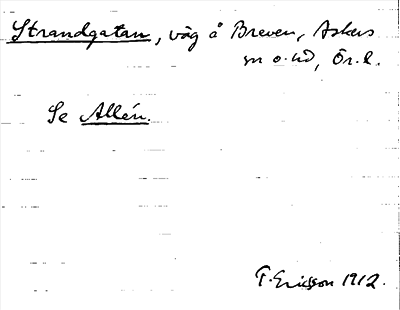 Strandgatan, väg å Breven, Askers
sn o. hd, Ör. l.
Se Allén.
T. Ericsson 1912.